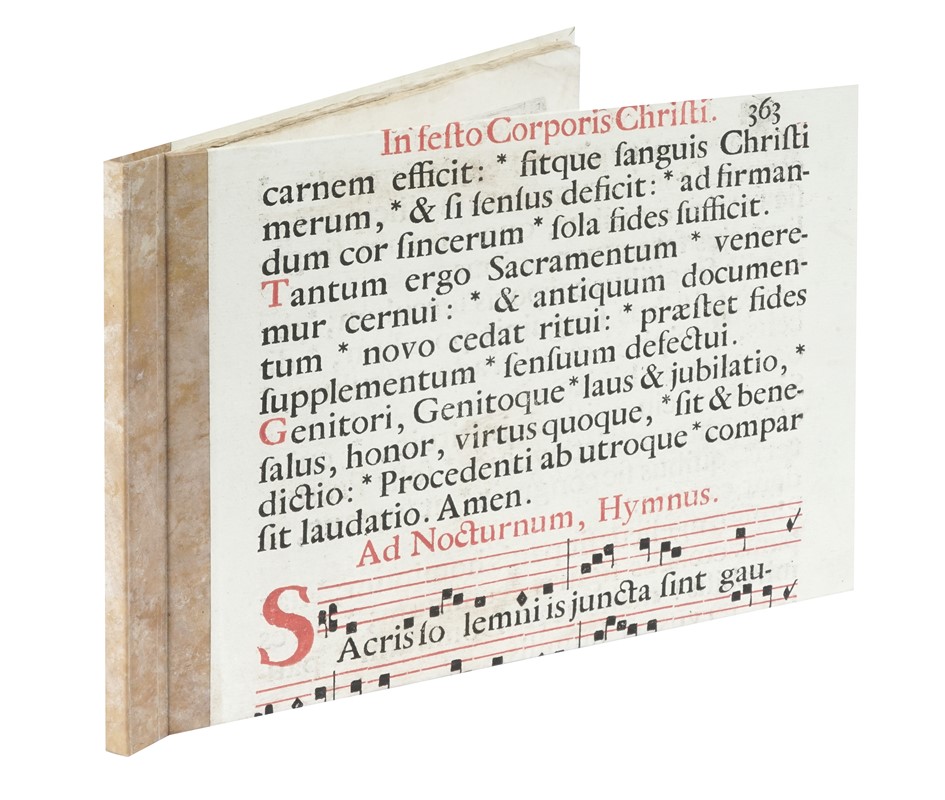 In feſto Corporis Chriſti. 363
carnem efficit: * fitque ſanguis Chriſti
merum, * & ſi ſenſus deficit: * ad firman-
dum cor ſincerum * ſola fides ſufficit.
Tantum ergo Sacramentum * venere-
mur cernui: * & antiquum documen-
tum * novo cedat ritui: * præſtet fides
ſupplementum * ſenſuum defectui.
Genitori, Genitoque * laus & jubilatio, *
ſalus, honor, virtus quoque, * ſit & bene-
dictio: * Procedenti ab utroque * compar
ſit laudatio. Amen.
Ad Nocturnum, Hymnus.
SAcris ſo lemni is juncta ſint gau-